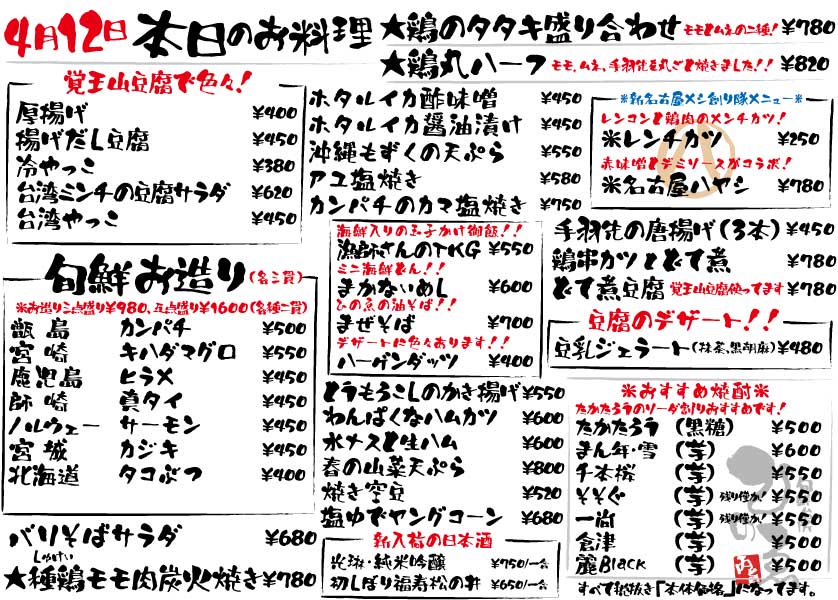 4月12日 本日のお料理
★鶏のタタキ盛り合わせ モモとムネの二種! ¥780
★鶏丸ハーフ モモ、ムネ、手羽先を丸ごと焼きました!! ¥820
覚王山豆腐で色々!
厚揚げ ¥400
揚げだし豆腐 ¥450
冷やっこ ¥380
台湾ミンチの豆腐サラダ ¥620
台湾やっこ ¥450
旬鮮お造り(各二貫)
※お造り三点盛り¥980、五点盛り¥1600(各種二貫)
甑島 カンパチ ¥500
宮崎 キハダマグロ ¥550
鹿児島 ヒラメ ¥450
師崎 真タイ ¥450
ノルウェー サーモン ¥450
宮城 カジキ ¥450
北海道 タコぶつ ¥400
バリそばサラダ ¥680
しゅけい
★種鶏モモ肉炭火焼き ¥780
ホタルイカ酢味噌 ¥450
ホタルイカ醤油漬け ¥450
沖縄もずくの天ぷら ¥550
アユ塩焼き ¥580
カンパチのカマ塩焼き ¥750
海鮮入りの玉子かけ御飯!!
漁師さんのTKG ¥550
ミニ海鮮どん!!
まかないめし ¥600
ひの魚の油そば!!
まぜそば ¥700
デザートに色々あります!!
ハーゲンダッツ ¥400
とうもろこしのかき揚げ ¥550
わんぱくなハムカツ ¥600
水ナスと生ハム ¥600
春の山菜天ぷら ¥800
焼き空豆 ¥520
塩ゆでヤングコーン ¥680
新入荷の日本酒
光琳・純米吟醸 ¥750/一合
初しぼり福寿松の井 ¥650/一合
※新名古屋メシ創り隊メニュー※
レンコンと鶏肉のメンチカツ!
※レンチカツ ¥250
赤味噌とデミソースがコラボ!
※名古屋ハヤシ ¥780
手羽先の唐揚げ(3本) ¥450
鶏串カツとどて煮 ¥780
どて煮豆腐 覚王山豆腐使ってます ¥780
豆腐のデザート!!
豆乳ジェラート(抹茶、黒胡麻) ¥480
※おすすめ焼酎※
たかたろうのソーダ割りおすすめです!
たかたろう (黒糖) ¥500
まん年・雪 (芋) ¥600
千本桜 (芋) ¥500
そそぐ (芋) 残り僅か! ¥550
一尚 (芋) 残り僅か! ¥550
倉津 (芋) ¥500
麗Black (芋) ¥500
すべて税抜き「本体価格」になってます。